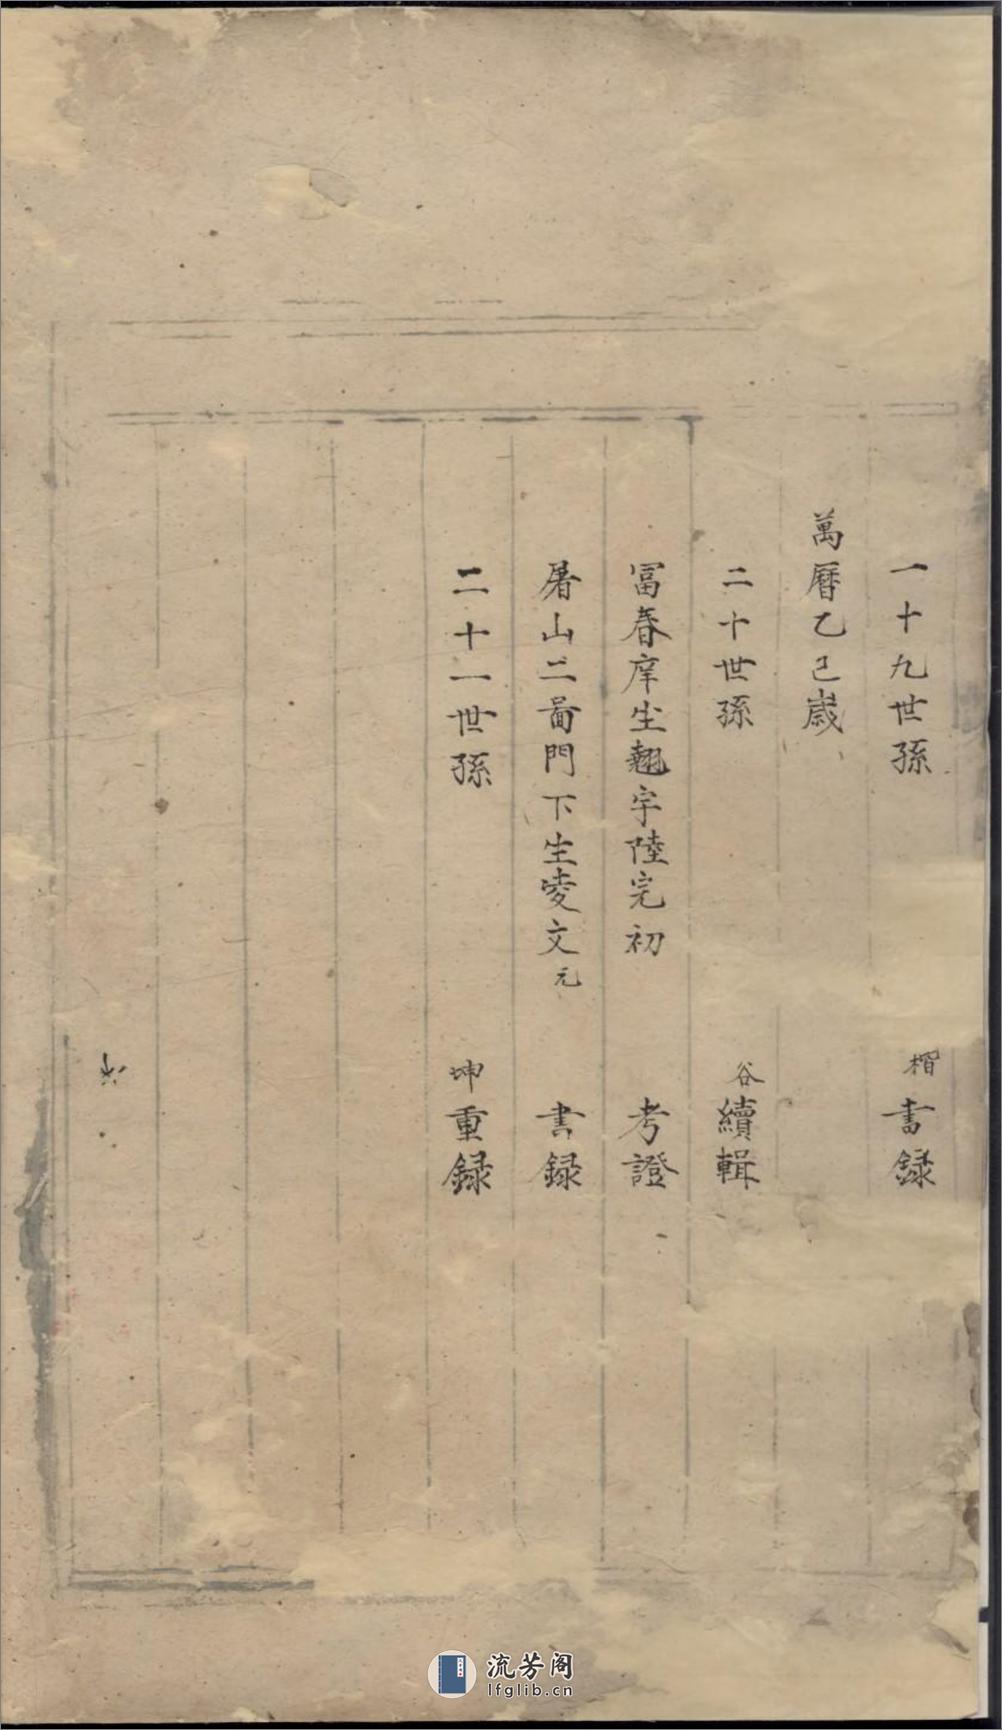 一十九世孫 楷書録
萬曆乙巳歲
二十世孫 谷續輯
冨春庠生翹宇陸完初 考證
屠山二啚門下生夌文元 書録
二十一世孫 坤重録
流芳阁
lfglib.cn